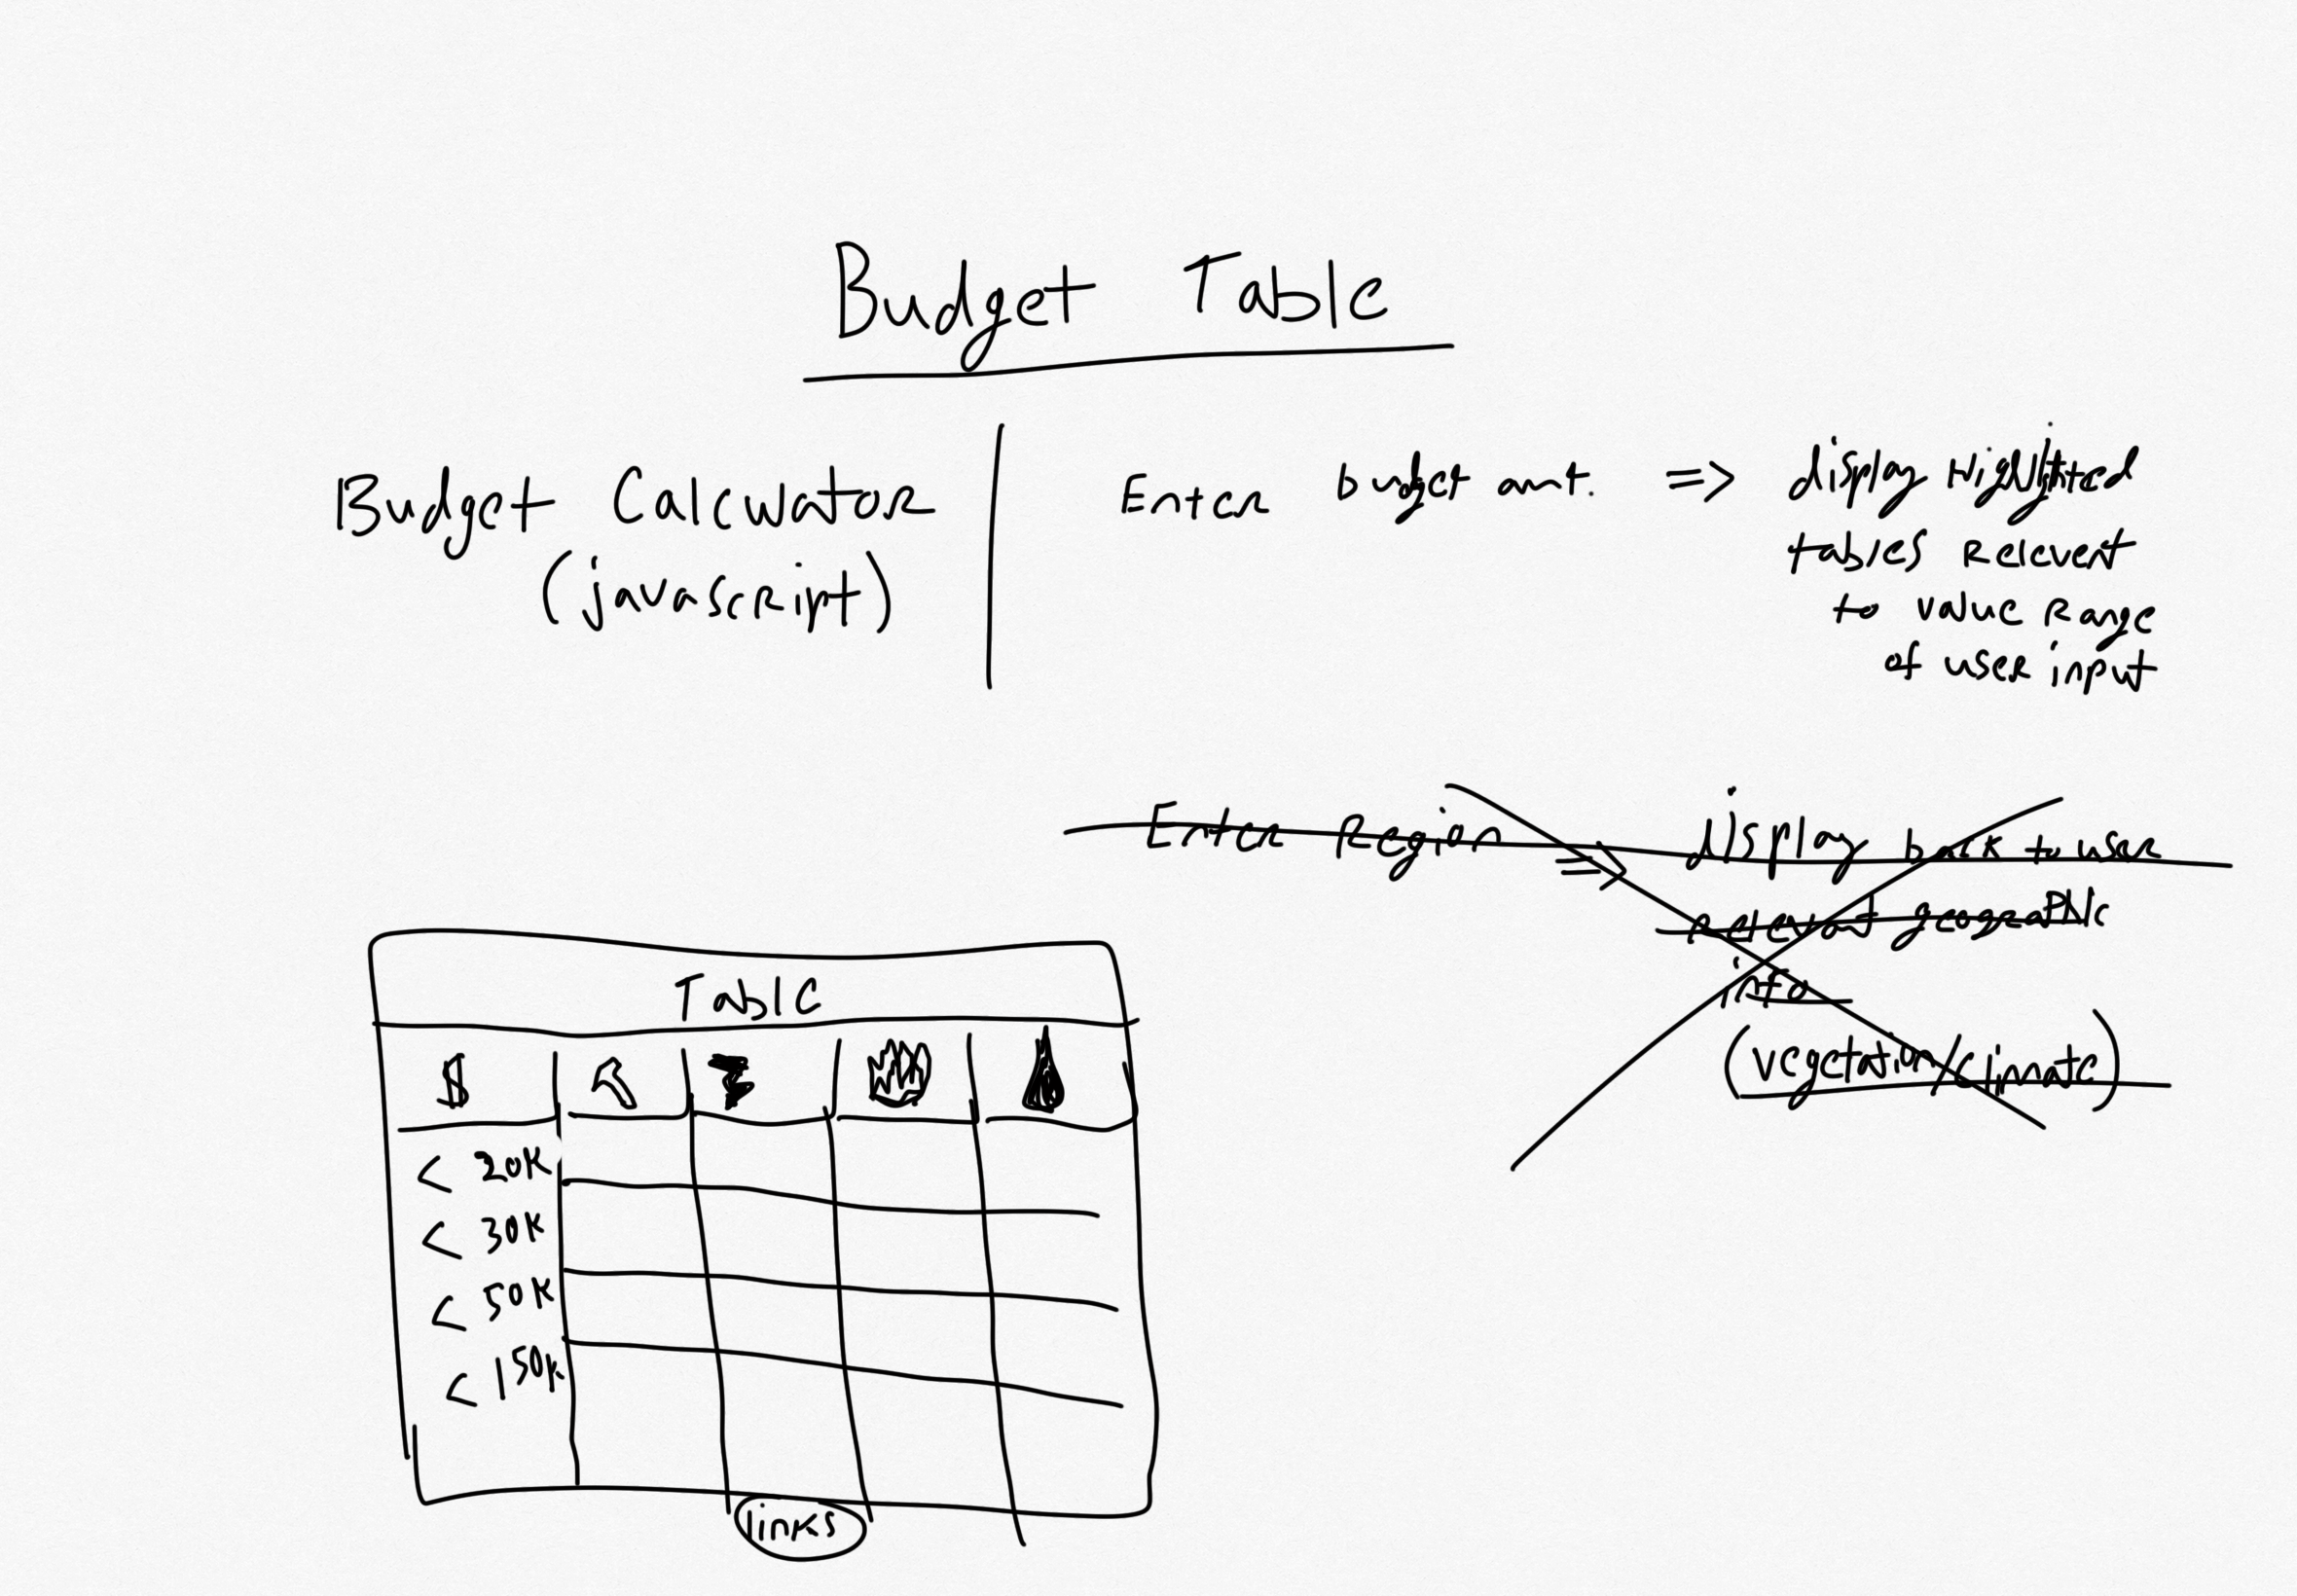 Budget Table
Budget Calculator
(javascript)
Enter budget amt. => display Highlighted
tables Relevent
to value Range
of user input
Enter Region => display back to user
relevant geographic
info
(vegetation/climate)
Table
$
< 20K
< 30K
< 50K
< 150K
links